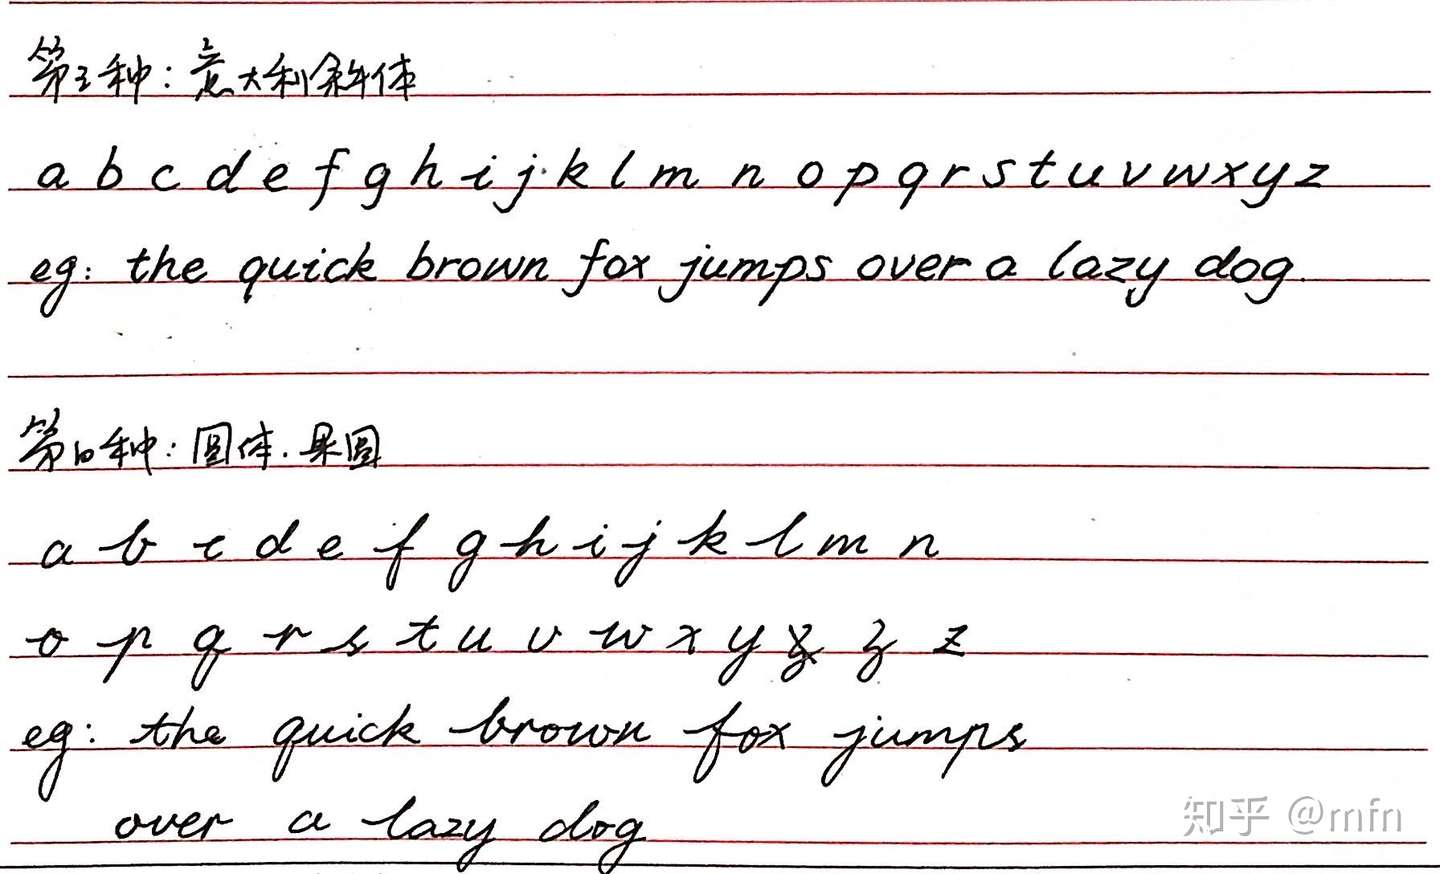 第三种：意大利斜体
a b c d e f g h i j k l m n o p q r s t u v w x y z
eg: the quick brown fox jumps over a lazy dog.
第四种：圆体.
a b c d e f g h i j k l m n
o p q r s t u v w x y z z
eg: the quick brown fox jumps
over a lazy dog
知乎 @mfn